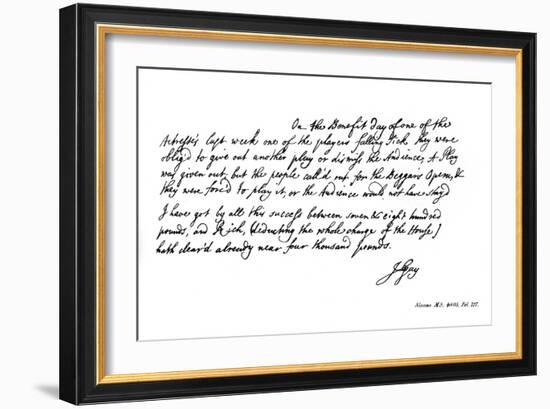 On the Benefit day of one of the
Actresse's last week one of the players falling sick they were
oblig'd to give out another play or dismiss the Audience, A Play
was given out, but the people call'd out for the Beggars Opera, &
they were forc'd to play it, or the Audience would not have stayd
I have got by all this success between seven & eight hundred
pounds, and Rich, (deducting the whole charge of the House)
hath clear'd already near four thousand pounds.
J Gay
M.S. Fol.